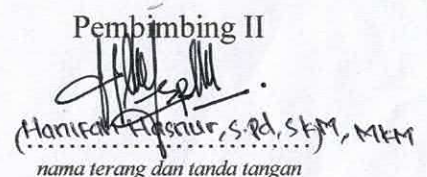 Pembimbing II
(Hanifah Hasnur, S.Pd, SKM, MKM
nama terang dan tanda tangan